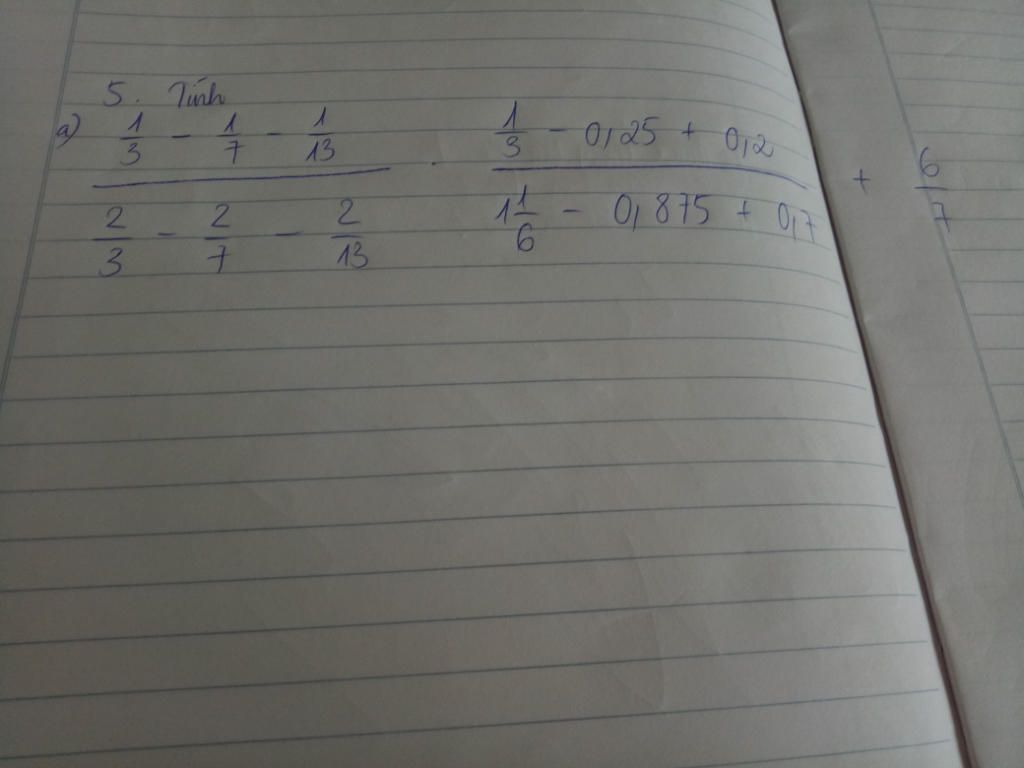 5. Tính
a) \frac{\frac{1}{3} - \frac{1}{7} - \frac{1}{13}}{\frac{2}{3} - \frac{2}{7} - \frac{2}{13}} . \frac{\frac{1}{3} - 0,25 + 0,2}{1\frac{1}{6} - 0,875 + 0,7} + \frac{6}{7}